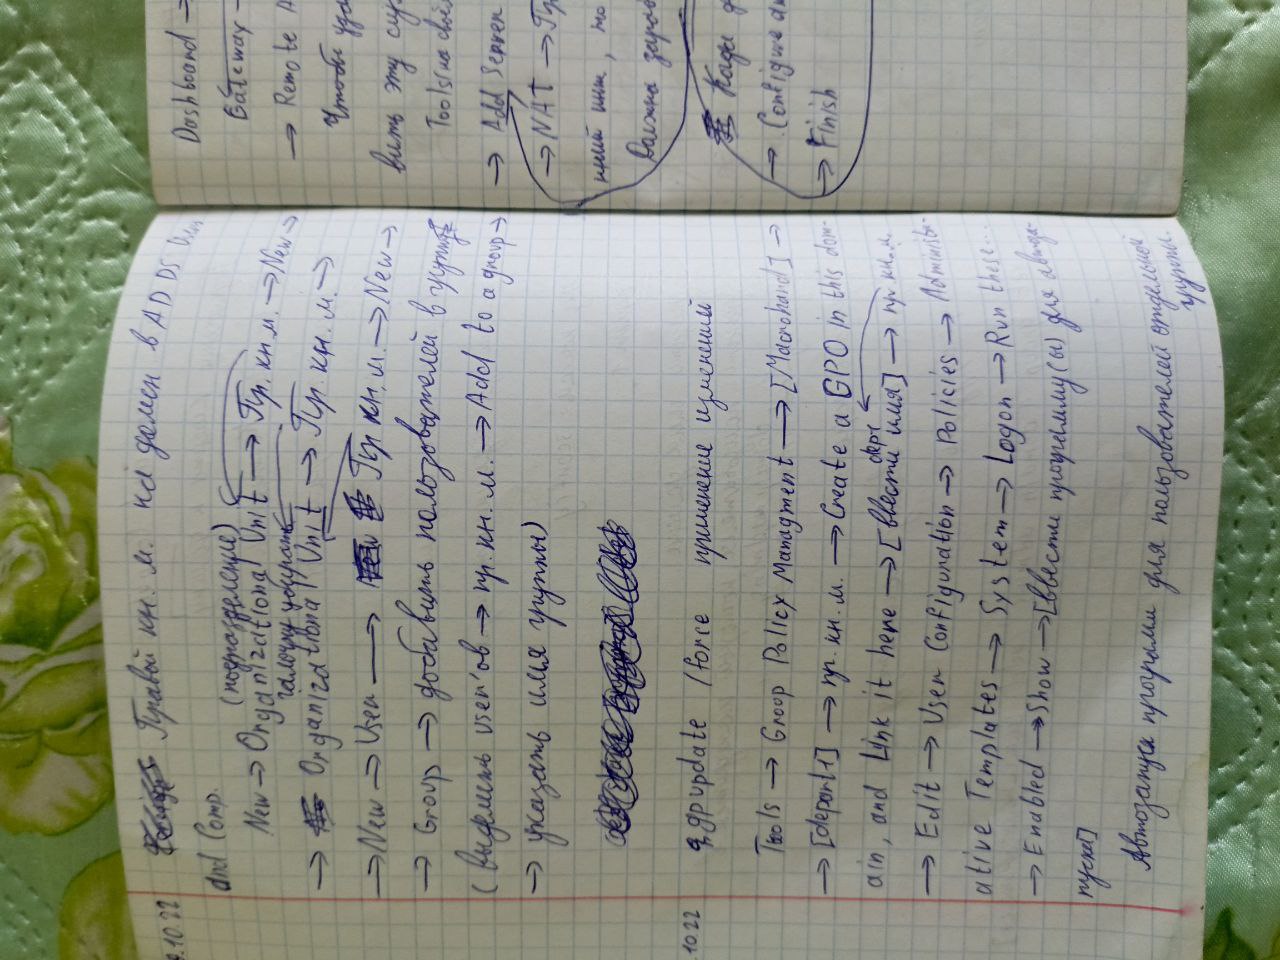 9.10.22
Правой кн. м. на домен в AD DS Users
and Comp.
(подразделение)
New → Organizational Unit → Пр. кн. м. → New →
галочку убирать
→ Organizational Unit → Пр. кн. м. →
→ New → User → Пр кн. м. → New →
→ Group → добавить пользователей в группу
(выделить user'ов → пр. кн. м. → Add to a group →
→ указать имя группы)
.10.22
gpupdate /force применение изменений
Tools → Group Policy Managment → [Monohand] →
→ [depart1] → пр. кн. м. → Create a GPO in this dom-
ain, and Link it here → [ввести имя] → пр. кн. м.
dep1
→ Edit → User Configuration → Policies → Administr-
ative Templates → System → Logon → Run these...
→ Enabled → Show → [ввести программу(ы) для автоза-
пуска]
Автозапуск програми для пользователей отдельной
группы.
Dashboard →
Gateway →
→ Remote A
Чтобы
вить эту
Tools на
→ Add Server
→ NAT → Пр
ний инт,
Должна
Когда
→ Configure
→ Finish